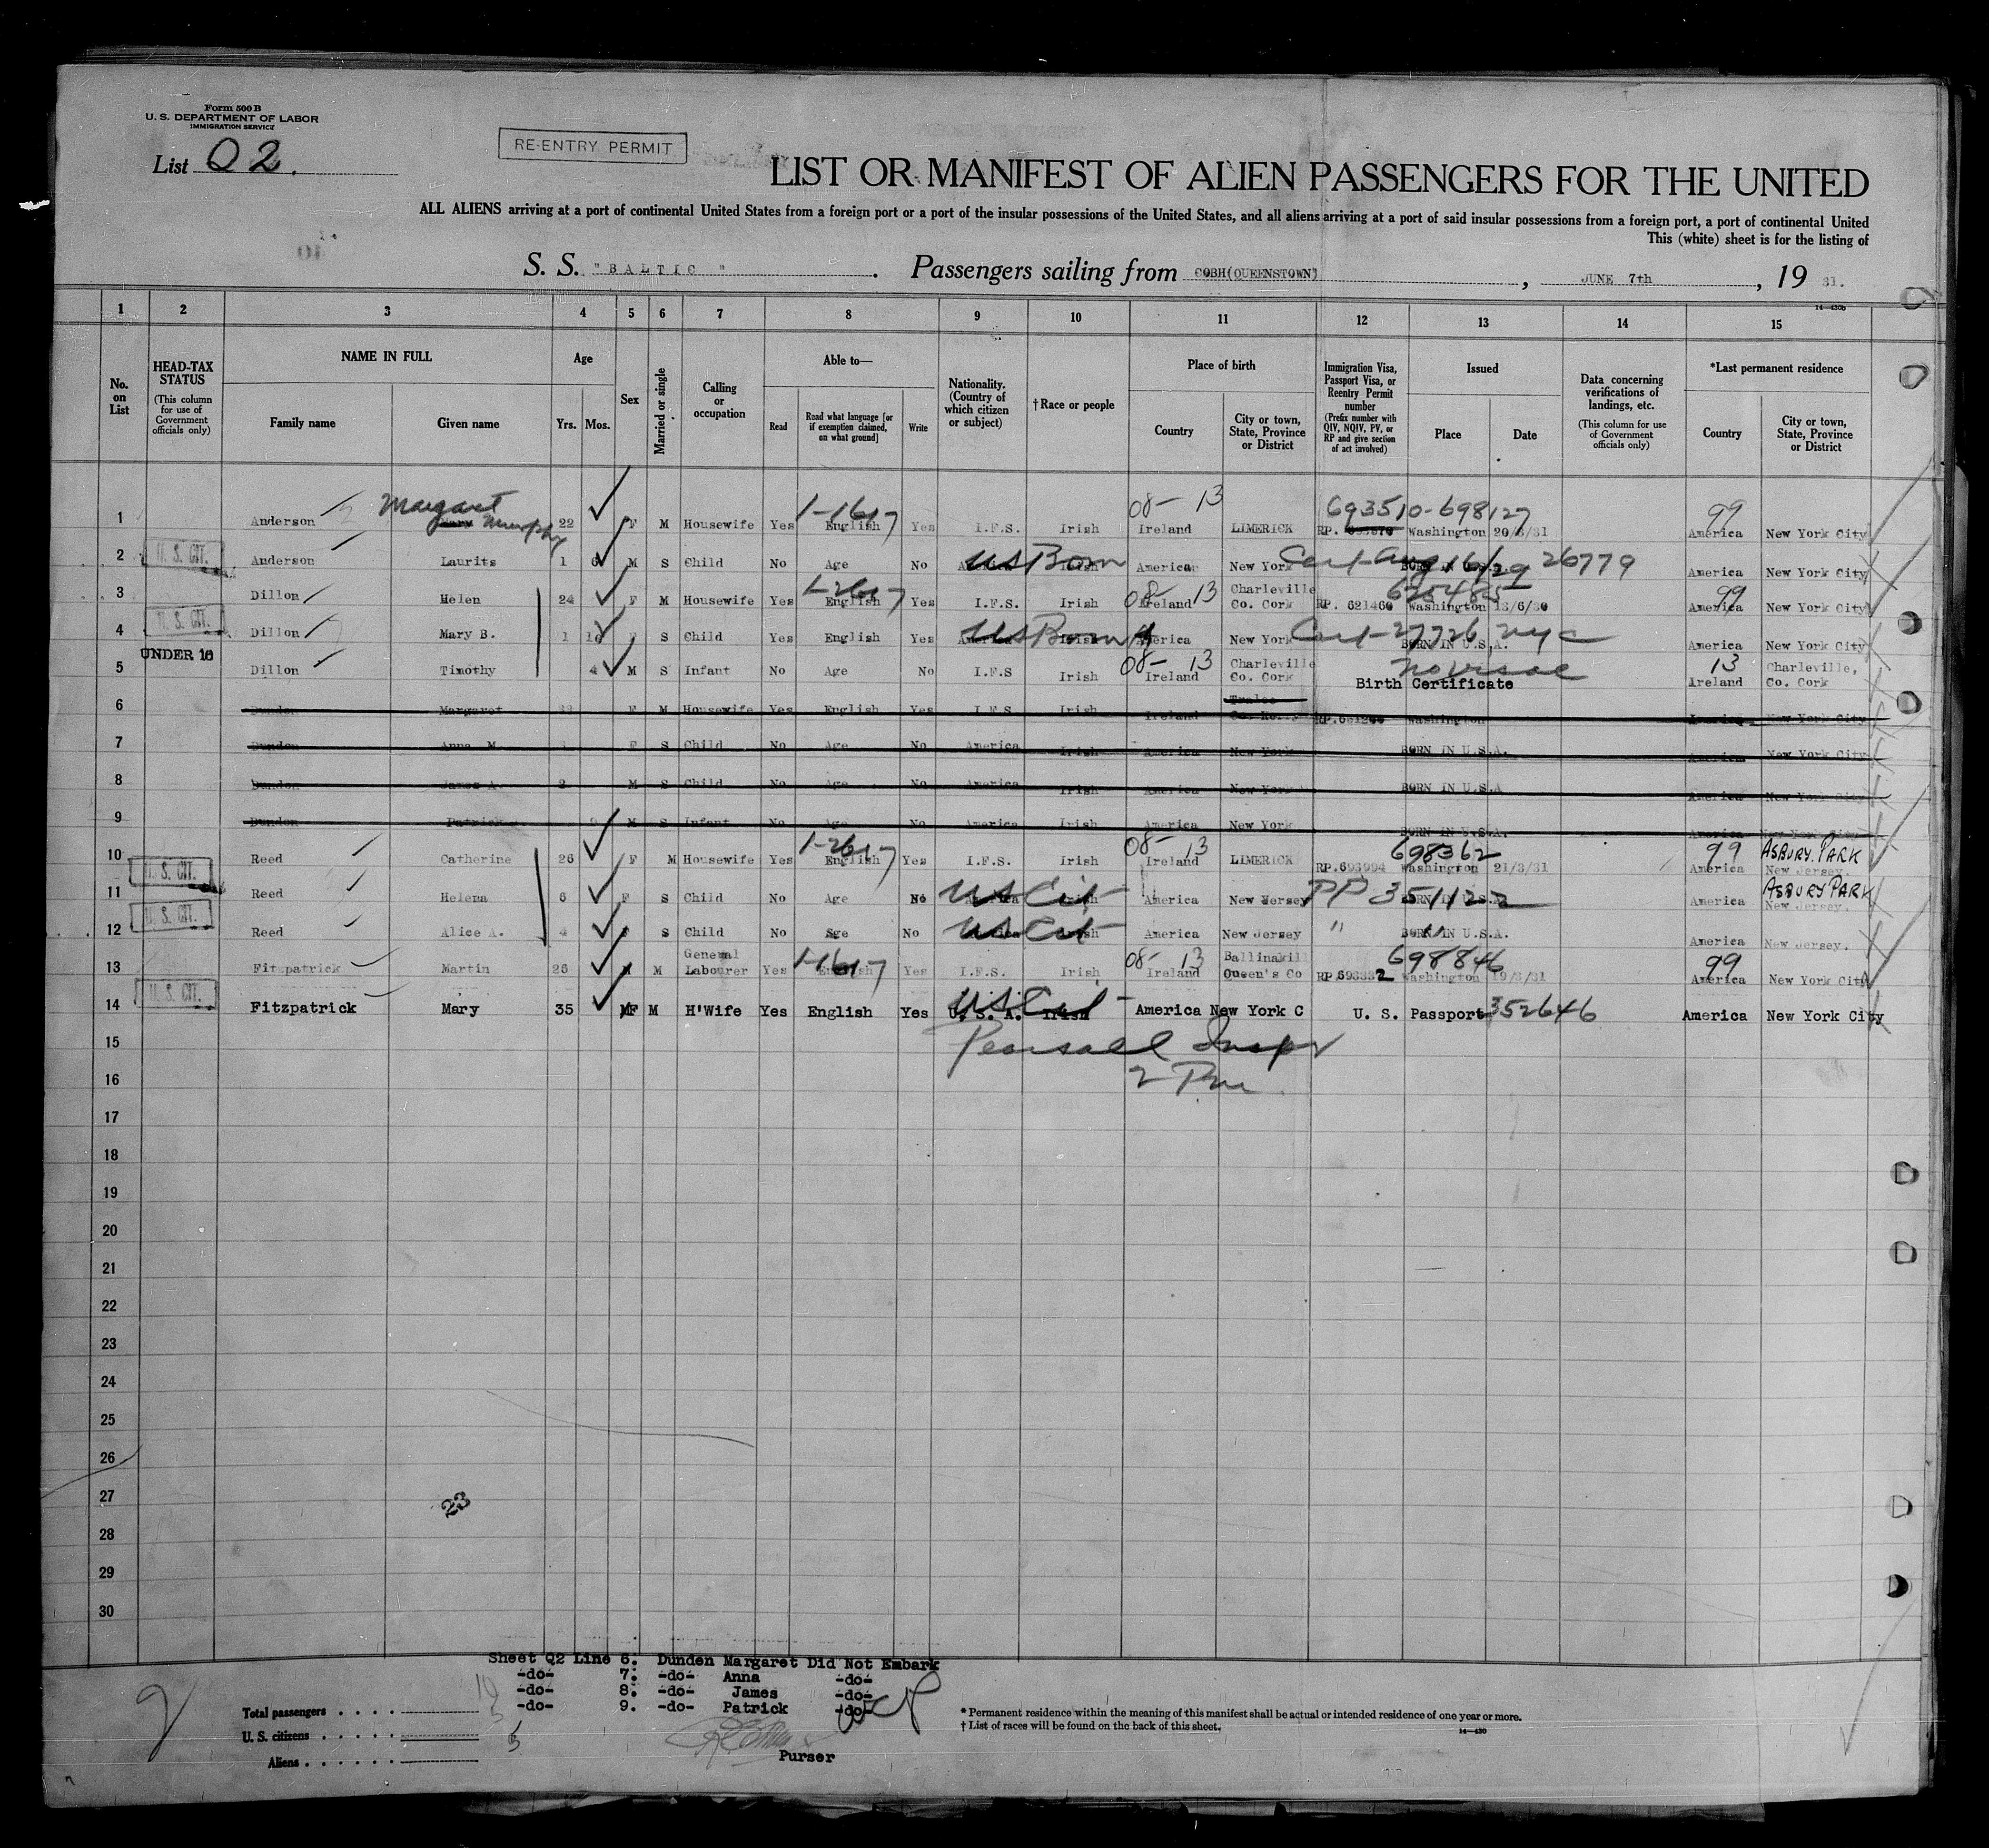 Form 500 B
U. S. DEPARTMENT OF LABOR
IMMIGRATION SERVICE
List Q 2.
RE-ENTRY PERMIT
LIST OR MANIFEST OF ALIEN PASSENGERS FOR THE UNITED
ALL ALIENS arriving at a port of continental United States from a foreign port or a port of the insular possessions of the United States, and all aliens arriving at a port of said insular possessions from a foreign port, a port of continental United
This (white) sheet is for the listing of
S. S. "BALTIC" . Passengers sailing from COBH(QUEENSTOWN) , JUNE 7th , 19 31.
14—430b
1 2 3 4 5 6 7 8 9 10 11 12 13 14 15
No. on List
HEAD-TAX STATUS (This column for use of Government officials only)
NAME IN FULL
Family name Given name
Age
Yrs. Mos.
Sex
Married or single
Calling or occupation
Able to—
Read Read what language [or if exemption claimed, on what ground] Write
Nationality. (Country of which citizen or subject)
†Race or people
Place of birth
Country City or town, State, Province or District
Immigration Visa, Passport Visa, or Reentry Permit number (Prefix number with QIV, NQIV, PV, or RP and give section of act involved)
Issued
Place Date
Data concerning verifications of landings, etc. (This column for use of Government officials only)
*Last permanent residence
Country City or town, State, Province or District
Margaret 1-1617 08- 13 693510-698127 99
1 Anderson Murphy 22 F M Housewife Yes English Yes I.F.S. Irish Ireland LIMERICK RP. Washington 20/3/31 America New York City
2 U. S. CIT. Anderson Laurits 1 6 M S Child No Age No US Born America New York Cert-Aug 16/29 26779 America New York City
1-2617 08- 13 625485 99
3 Dillon Helen 24 F M Housewife Yes English Yes I.F.S. Irish Ireland Charleville Co. Cork RP. 621460 Washington 13/6/30 America New York City
4 U. S. CIT. Dillon Mary B. 1 10 S Child Yes English Yes US Born America New York Cert-27726 nyc BORN IN U.S.A. America New York City
UNDER 16
5 Dillon Timothy 4 M S Infant No Age No I.F.S Irish 08- 13 Ireland Charleville Co. Cork no visae Birth Certificate 13 Ireland Charleville, Co. Cork
6 Dunden Margaret F M Housewife Yes English Yes I.F.S Irish Ireland Tralee Washington America New York City
7 Dunden Anna M. F S Child No Age No America Irish America New York BORN IN U.S.A. America New York City
8 Dunden James A. 2 M S Child No Age No America Irish America New York BORN IN U.S.A America New York City
9 Dunden Patrick M S Infant No Age No America Irish America New York BORN IN U.S.A. America New York City
1-2617 08- 13 698362 99 ASBURY PARK
10 Reed Catherine 26 F M Housewife Yes English Yes I.F.S. Irish Ireland LIMERICK RP.693994 Washington 21/3/31 America New Jersey.
11 U. S. CIT. Reed Helena 6 F S Child No Age No US Cit America New Jersey PP 351122 America ASBURY PARK New Jersey.
12 U. S. CIT. Reed Alice A. 4 S Child No Age No US Cit America New Jersey " BORN IN U.S.A. America New Jersey.
13 Fitzpatrick Martin 26 M M General Labourer Yes 1-1617 English Yes I.F.S. Irish 08- 13 Ireland Ballinakill Queen's Co 698846 Washington 19/3/31 99 America New York City
14 U. S. CIT. Fitzpatrick Mary 35 F M H'Wife Yes English Yes US Cit U. S. A. Irish America New York C U. S. Passport 352646 America New York City
15 Pearsall Inspr
16 2 Pm
17
18
19
20
21
22
23
24
25
26
27
28
29
30
23
Sheet Q2 Line 6: Dunden Margaret Did Not Embark
-do- 7: -do- Anna -do-
-do- 8: -do- James -do-
-do- 9. -do- Patrick -do-
Purser
Total passengers . . . .
U. S. citizens . . . . . 5
Aliens . . . . . .
* Permanent residence within the meaning of this manifest shall be actual or intended residence of one year or more.
† List of races will be found on the back of this sheet.
14—430